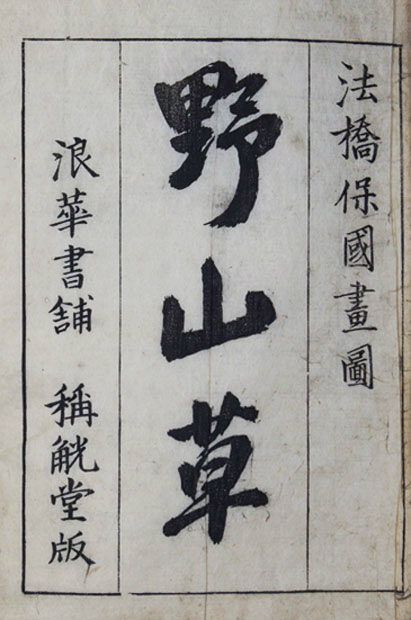 法橋保國畫圖
野山草
浪華書舗 稱觥堂版